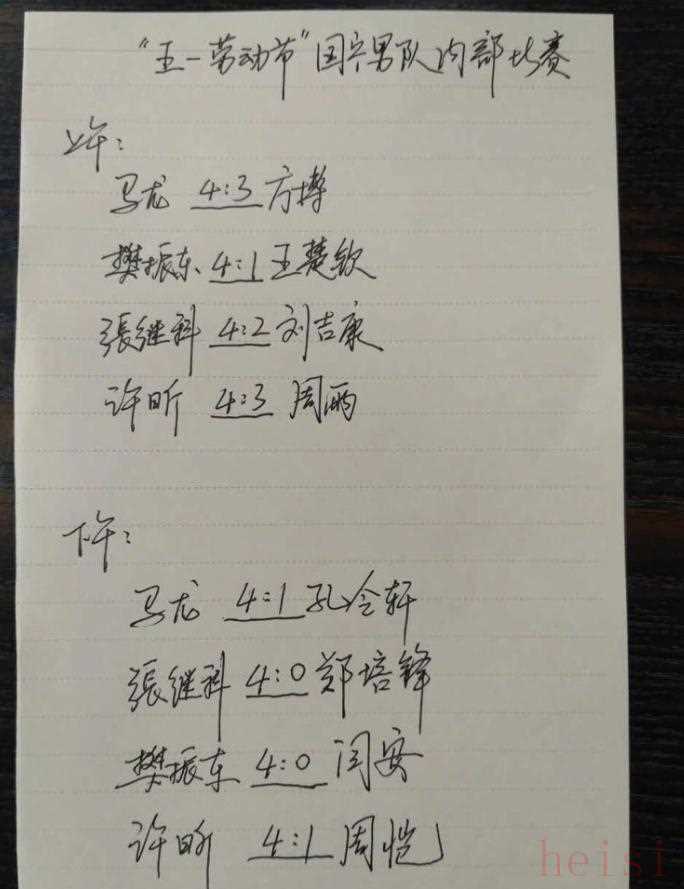 "五一劳动节"国乒男队内部比赛
上午：
马龙 4:3 方博
樊振东 4:1 王楚钦
張继科 4:2 刘吉康
许昕 4:3 周雨
下午：
马龙 4:1 孔令轩
張继科 4:0 郑培锋
樊振东 4:0 闫安
许昕 4:1 周恺
heisi